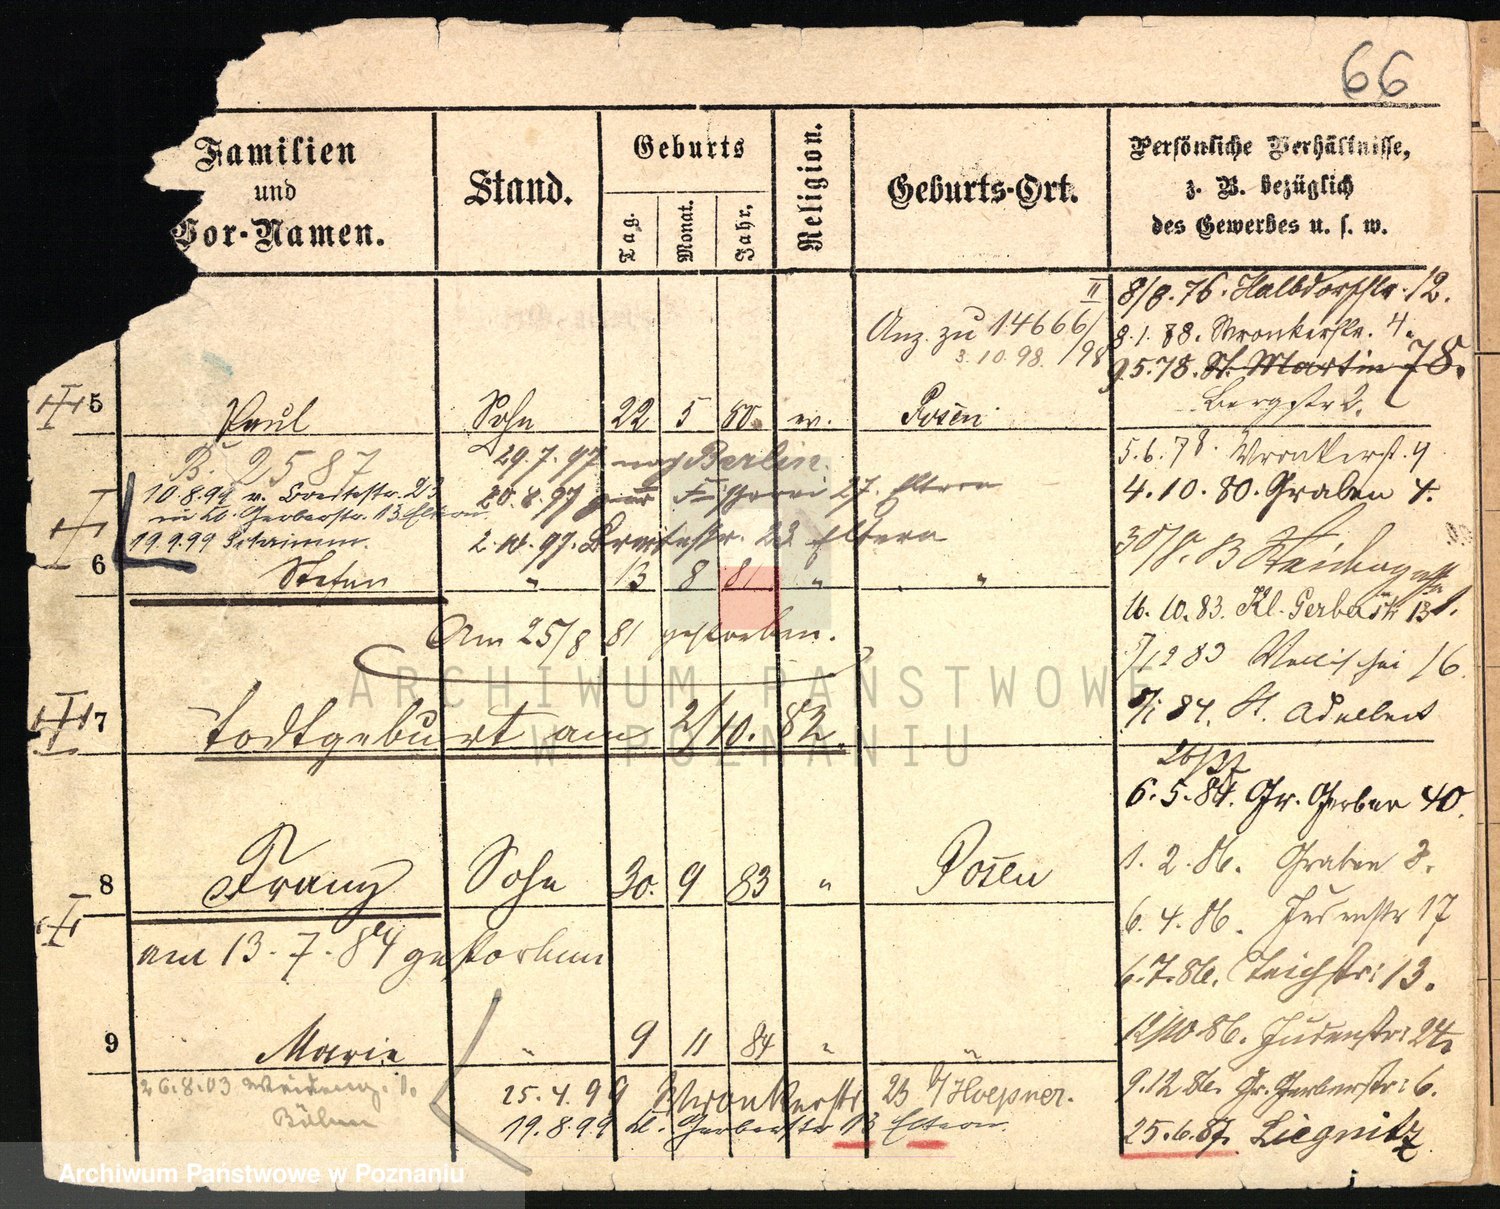 66
Familien
und
Vor-Namen.
Stand.
Geburts
Tag.
Monat.
Jahr.
Religion.
Geburts-Ort.
Persönliche Verhältnisse,
z. B. bezüglich
des Gewerbes u. s. w.
II
Anz. zu 14666/
3.10.98. /98
8/8.76. Halbdorfstr. 12.
8.1.88. Wronkerstr. 4.
9.5.78. St. Martin 78.
Bergstr 2.
5 Paul Sohn 22 5 80. Posen
B. 2587
29.7.97 nach Berlin.
10.8.99 v. Breitestr. 23
in Kl. Gerberstr. 13 Eltern
19.9.99
20.8.97 Fischerei 27. Eltern
2.10.97. Breitestr. 23 Eltern
6 Stefan " 13 8 81 " "
Am 25/8 81 gestorben.
7 Todtgeburt am 2/10. 82.
8 Franz Sohn 30. 9 83 " Posen
am 13.7.84 gestorben
9 Marie " 9 11 84 " "
26.8.03
Böhm
25.4.99 Wronkerstr 23 b/ Hoepner.
19.8.99 Kl. Gerberstr 13 Eltern
5.6.78. Wronkerst. 4
4.10.80. Graben 4.
16.10.83. Kl. Gerberstr 13
83 Wallischei 16
84. St. Adelbert
6.5.84. Gr. Gerber 40.
1.2.86. Graben 3.
6.4.86. Judenstr 17
6.7.86. Teichstr: 13.
12/10.86. Judenstr: 24.
9.12.86. Gr. Gerberstr: 6.
25.6.87. Liegnitz
ARCHIWUM PAŃSTWOWE
W POZNANIU
Archiwum Państwowe w Poznaniu